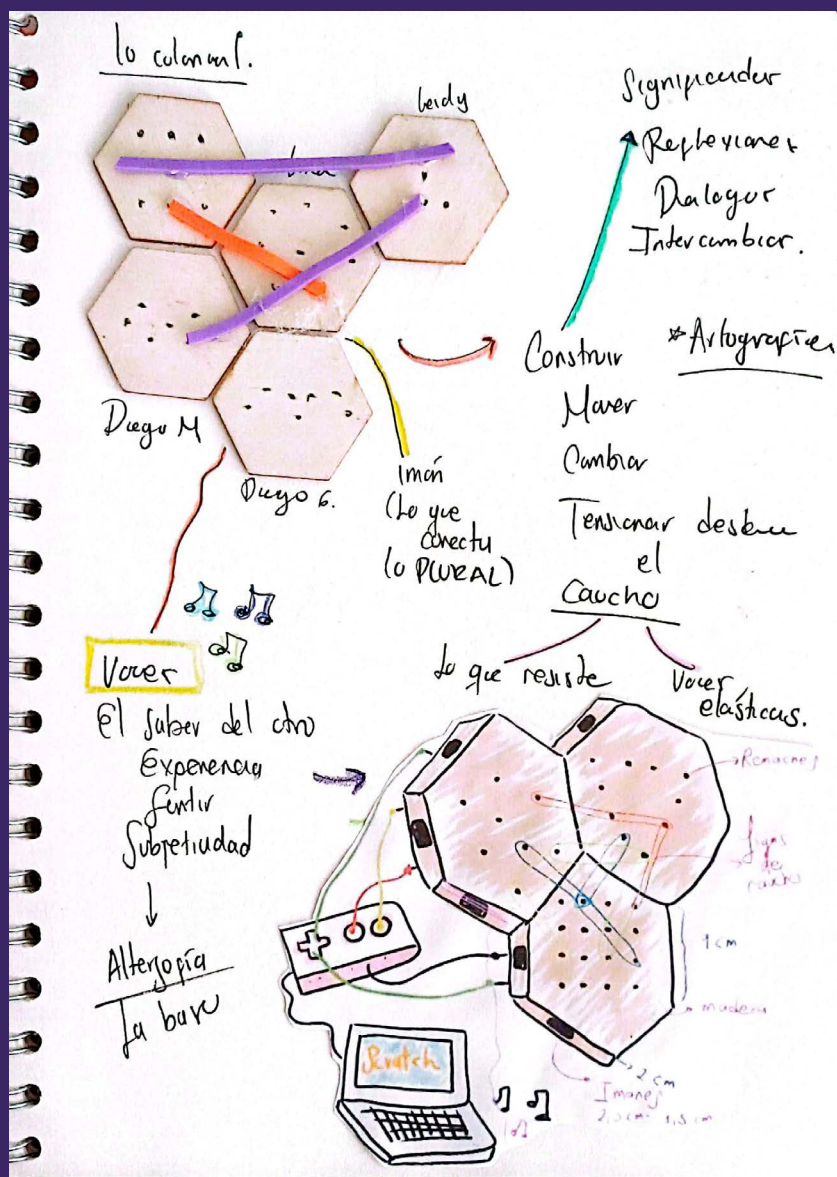 lo colonial.
Leidy
Diego M
Diego G.
Imán
(Lo que
conecta
lo PLURAL)
Significados
Reflexiones
Dialogar
Intercambiar.
Construir
*Artografías
Mover
Cambiar
Tensionar
el
Caucho
Lo que resiste
Voces
elásticas.
Voces
El saber del otro
Experiencia
Sentir
Subjetividad
Alterjopía
La base
Remaches
de
caucho
1 cm
madera
2 cm
Imanes
Scratch